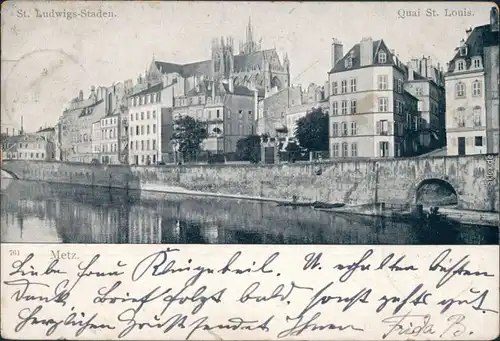 St. Ludwigs-Staden.
Quai St. Louis.
761
Metz.
Liebe Frau Königsbeil. K. erhalten besten
Dank, Brief folgt bald. sonst geht's gut.
Herzliche Grüsse sendet Ihnen Frida B.